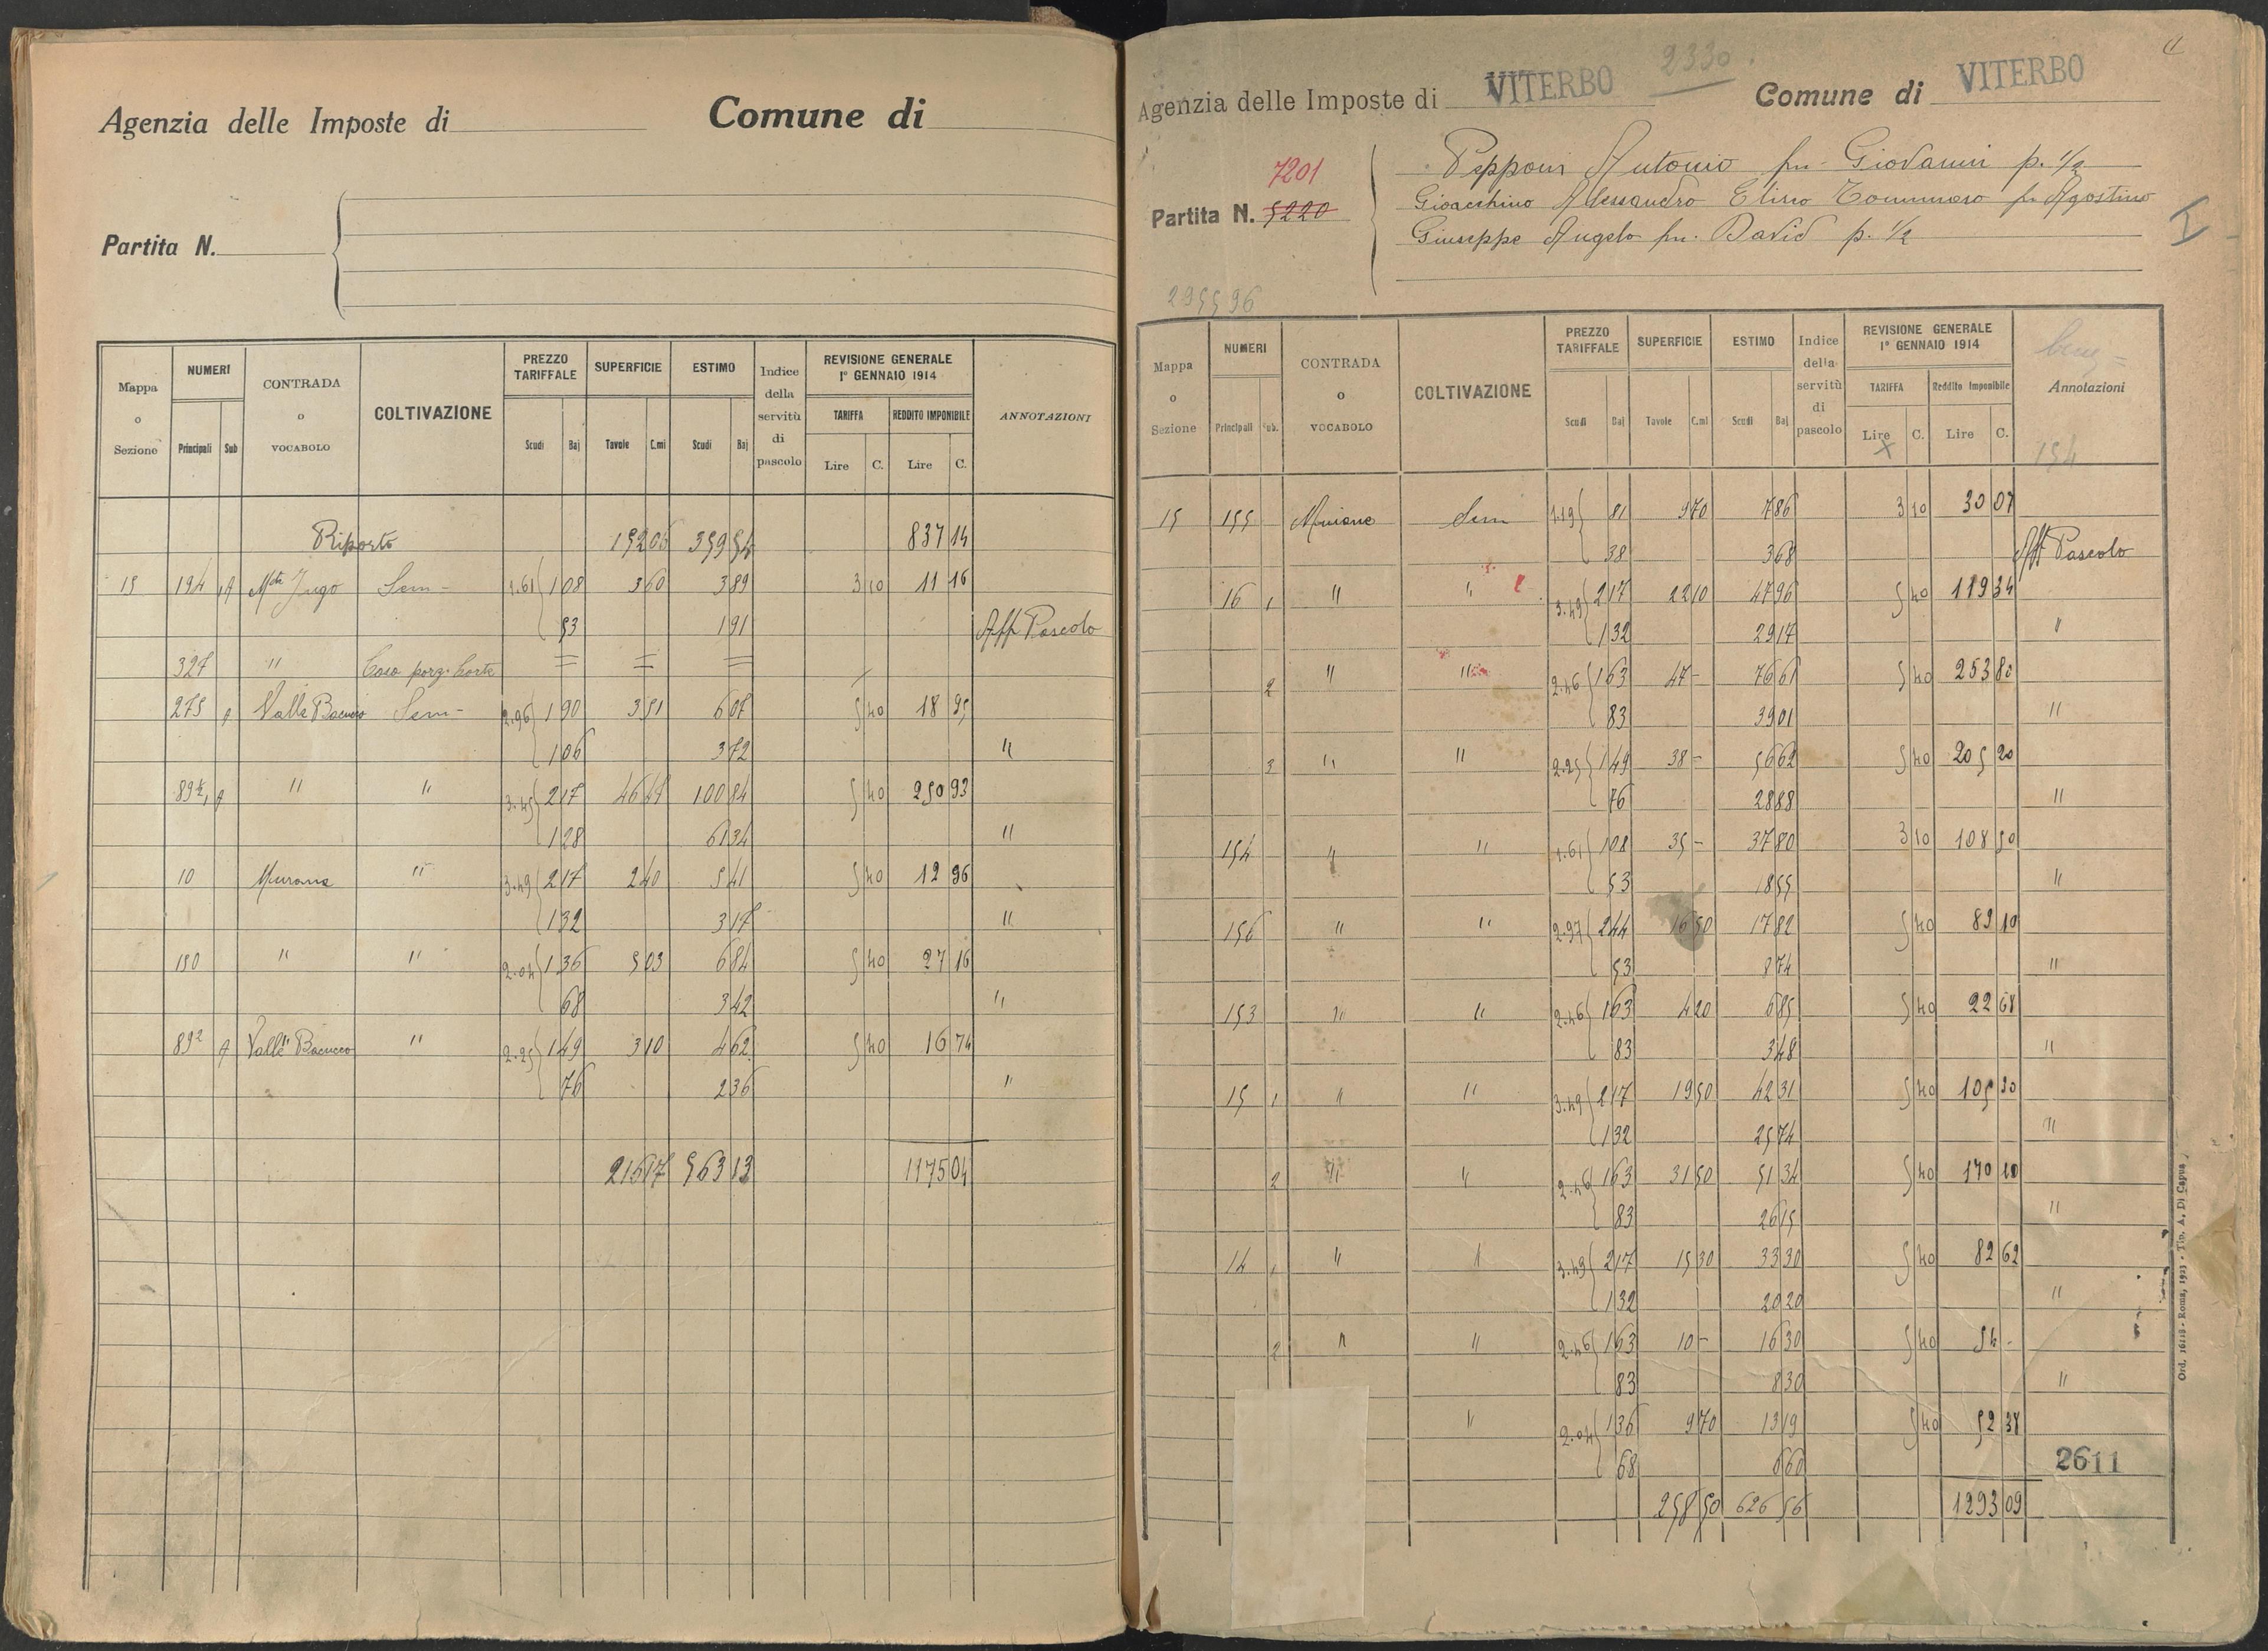 Agenzia delle Imposte di Comune di
Partita N.
Mappa o Sezione NUMERI Principali Sub CONTRADA o VOCABOLO COLTIVAZIONE PREZZO TARIFFALE Scudi Baj SUPERFICIE Tavole C.mi ESTIMO Scudi Baj Indice della servitù di pascolo REVISIONE GENERALE 1° GENNAIO 1914 TARIFFA Lire C. REDDITO IMPONIBILE Lire C. ANNOTAZIONI
Riporto 152 06 359 54 837 14
15 194 A Mte Jugo Sem- 1.61 1 08 3 60 3 89 3 10 11 16
53 1 91 Aff Pascolo
327 " Casa porz. Corte = = =
275 A Valle Bacucco Sem- 2.96 1 90 3 51 6 07 5 40 18 95
1 06 3 72 "
89 1/2 1 A " " 3.45 2 17 46 47 100 84 5 40 250 93
1 28 61 34 "
10 Murana " 3.49 2 17 2 40 5 41 5 40 12 96
1 32 3 17 "
150 " " 2.04 1 36 5 03 6 84 5 40 27 16
68 3 42 "
89 2 A Valle Bacucco " 2.25 1 49 3 10 4 62 5 40 16 74
76 2 36 "
216 17 563 13 1175 04
2330
Agenzia delle Imposte di VITERBO Comune di VITERBO
7201
Partita N. 5220
Pepponi Antonio fu Giovanni p. 1/2
Gioacchino Alessandro Eliso Tommaso fu Agostino
Giuseppe Angelo fu David p. 1/2
I
295596
Mappa o Sezione NUMERI Principali Sub. CONTRADA o VOCABOLO COLTIVAZIONE PREZZO TARIFFALE Scudi Baj SUPERFICIE Tavole C.mi ESTIMO Scudi Baj Indice della servitù di pascolo REVISIONE GENERALE 1° GENNAIO 1914 TARIFFA Lire C. Reddito Imponibile Lire C. Annotazioni
x 154
15 155 Sem 1.19 81 9 70 7 86 3 10 30 07
38 3 68 Aff Pascolo
16 1 " " 3.49 2 17 22 10 47 96 5 40 119 34
1 32 29 17 "
2 " " 2.46 1 63 47 - 76 61 5 40 253 80
83 39 01 "
3 " " 2.25 1 49 38 - 56 62 5 40 205 20
76 28 88 "
154 " " 1.61 1 08 35 - 37 80 3 10 108 50
53 18 55 "
156 " " 2.97 2 44 16 50 17 82 5 40 89 10
53 8 74 "
153 " " 2.46 1 63 4 20 6 85 5 40 22 68
83 3 48 "
15 1 " " 3.49 2 17 19 50 42 31 5 40 105 30
1 32 25 74 "
2 " " 2.46 1 63 31 50 51 34 5 40 170 10
83 26 15 "
14 1 " " 3.49 2 17 15 30 33 30 5 40 82 62
1 32 20 20 "
2 " " 2.46 1 63 10 - 16 30 5 40 54 -
83 8 30 "
" 2.04 1 36 9 70 13 19 5 40 52 38
68 6 60 2611
258 50 626 56 1293 09
Ord. 16118 - Roma, 1923 - Tip. A. Di Capua